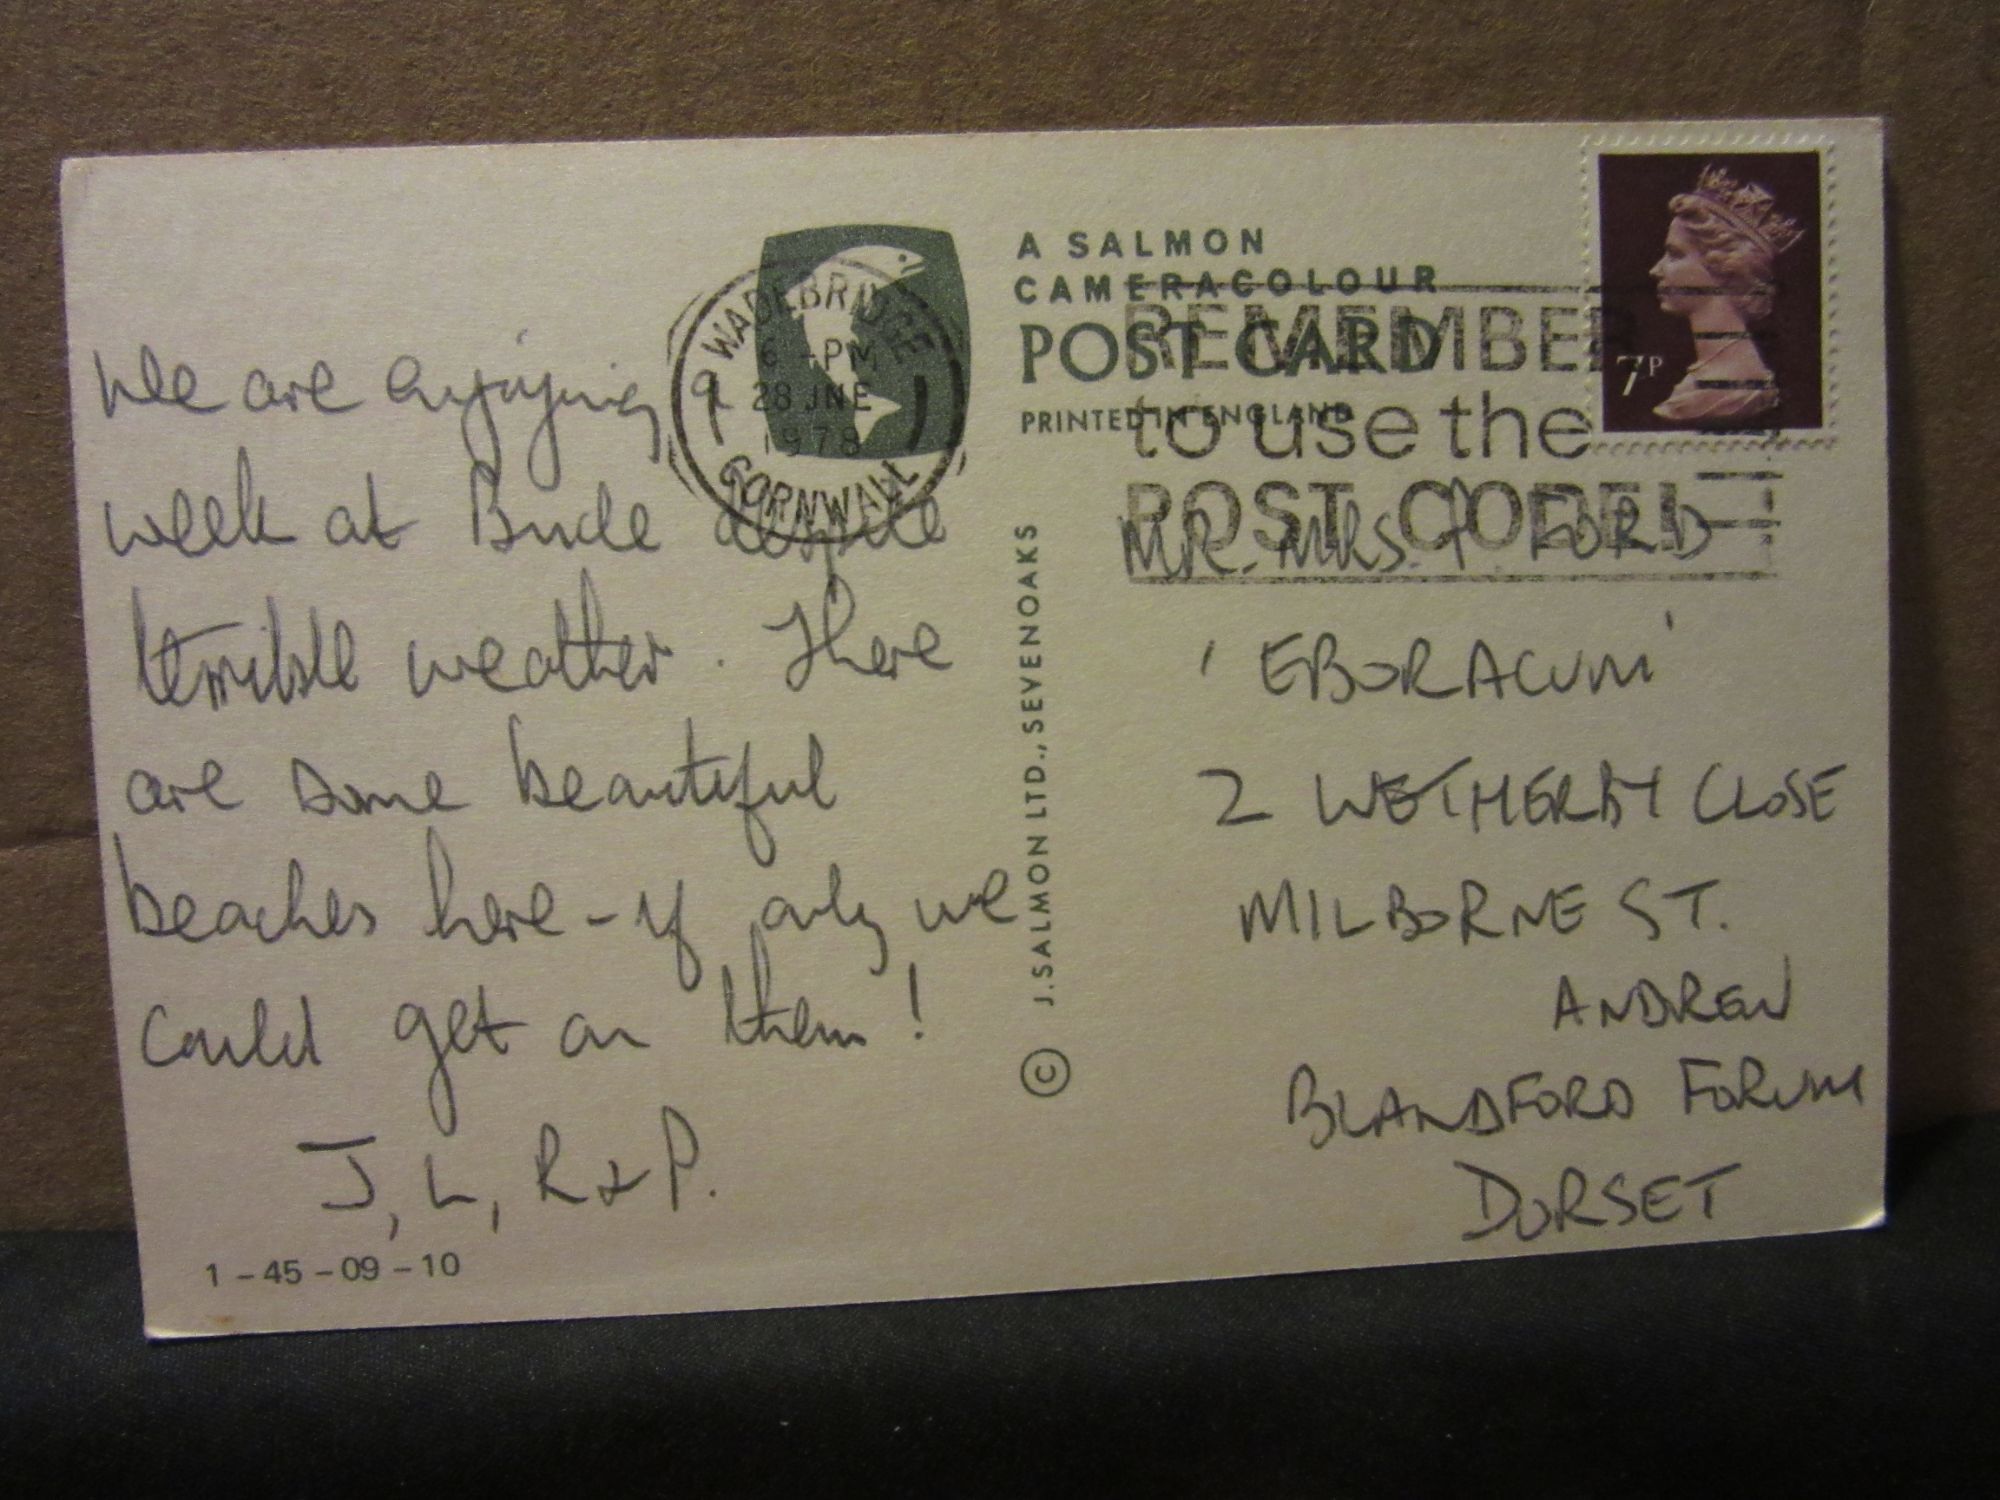 We are enjoying a
week at Bude despite
terrible weather. There
are some beautiful
beaches here - if only we
could get on them!
J, L, R & P.
1-45-09-10
WADEBRIDGE
6 - PM
28 JNE
1978
CORNWALL
A SALMON
CAMERACOLOUR
POST CARD
PRINTED IN ENGLAND
© J. SALMON LTD., SEVENOAKS
REMEMBER
to use the
POST CODE
7P
MR. MRS. FORD
'EBORACUM'
2 WETHERBY CLOSE
MILBORNE ST.
ANDREW
BLANDFORD FORUM
DORSET